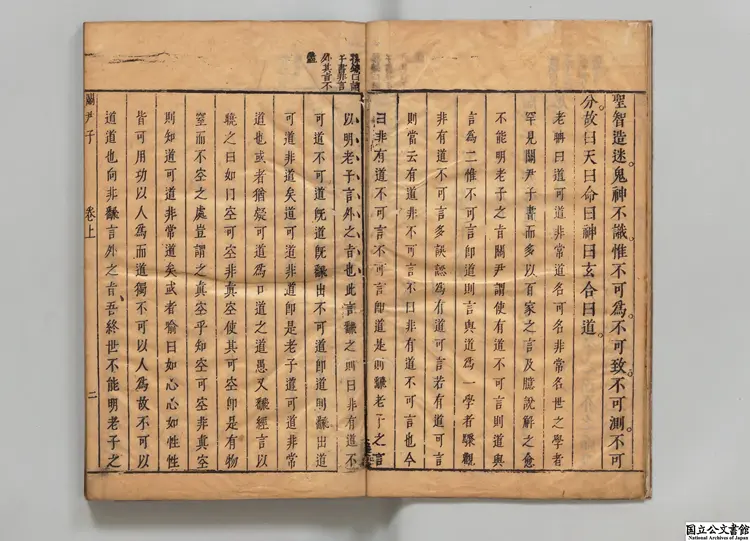 聖智造迷。鬼神不識。惟不可爲。不可致。不可測。不可
分。故曰天曰命曰神曰玄合曰道。
老聃曰道可道非常道名可名非常名世之學者
罕見關尹子書而多以百家之言及臆說解之愈
不能明老子之旨關尹謂使有道不可言則道與
言爲二惟不可言卽道則言與道爲一學者驟觀
非有道不可言多誤認爲有道可言若有道可言
則當云有道非不可言不曰非有道不可言也今
曰非有道不可言不可言卽道是則翻老子之言
以明老子言外之旨也此言翻之則曰非有道不
可道不可道旣道旣翻出不可道卽道則翻出道
可道非道矣道可道非道卽是老子道可道非常
道也或者猶疑可道爲口道之道愚又翻經言以
曉之曰如曰空可空非眞空使其可空卽是有物
窒而不空之處豈謂之眞空乎知空可空非眞空
則知道可道非常道矣或者喻曰如心心如性性
皆可用功以人爲而道獨不可以人爲故不可以
道道也向非翻言外之旨吾終世不能明老子之
孫鑛曰諸
子書非言
外其言不
關尹子
卷上
二
国立公文書館
National Archives of Japan